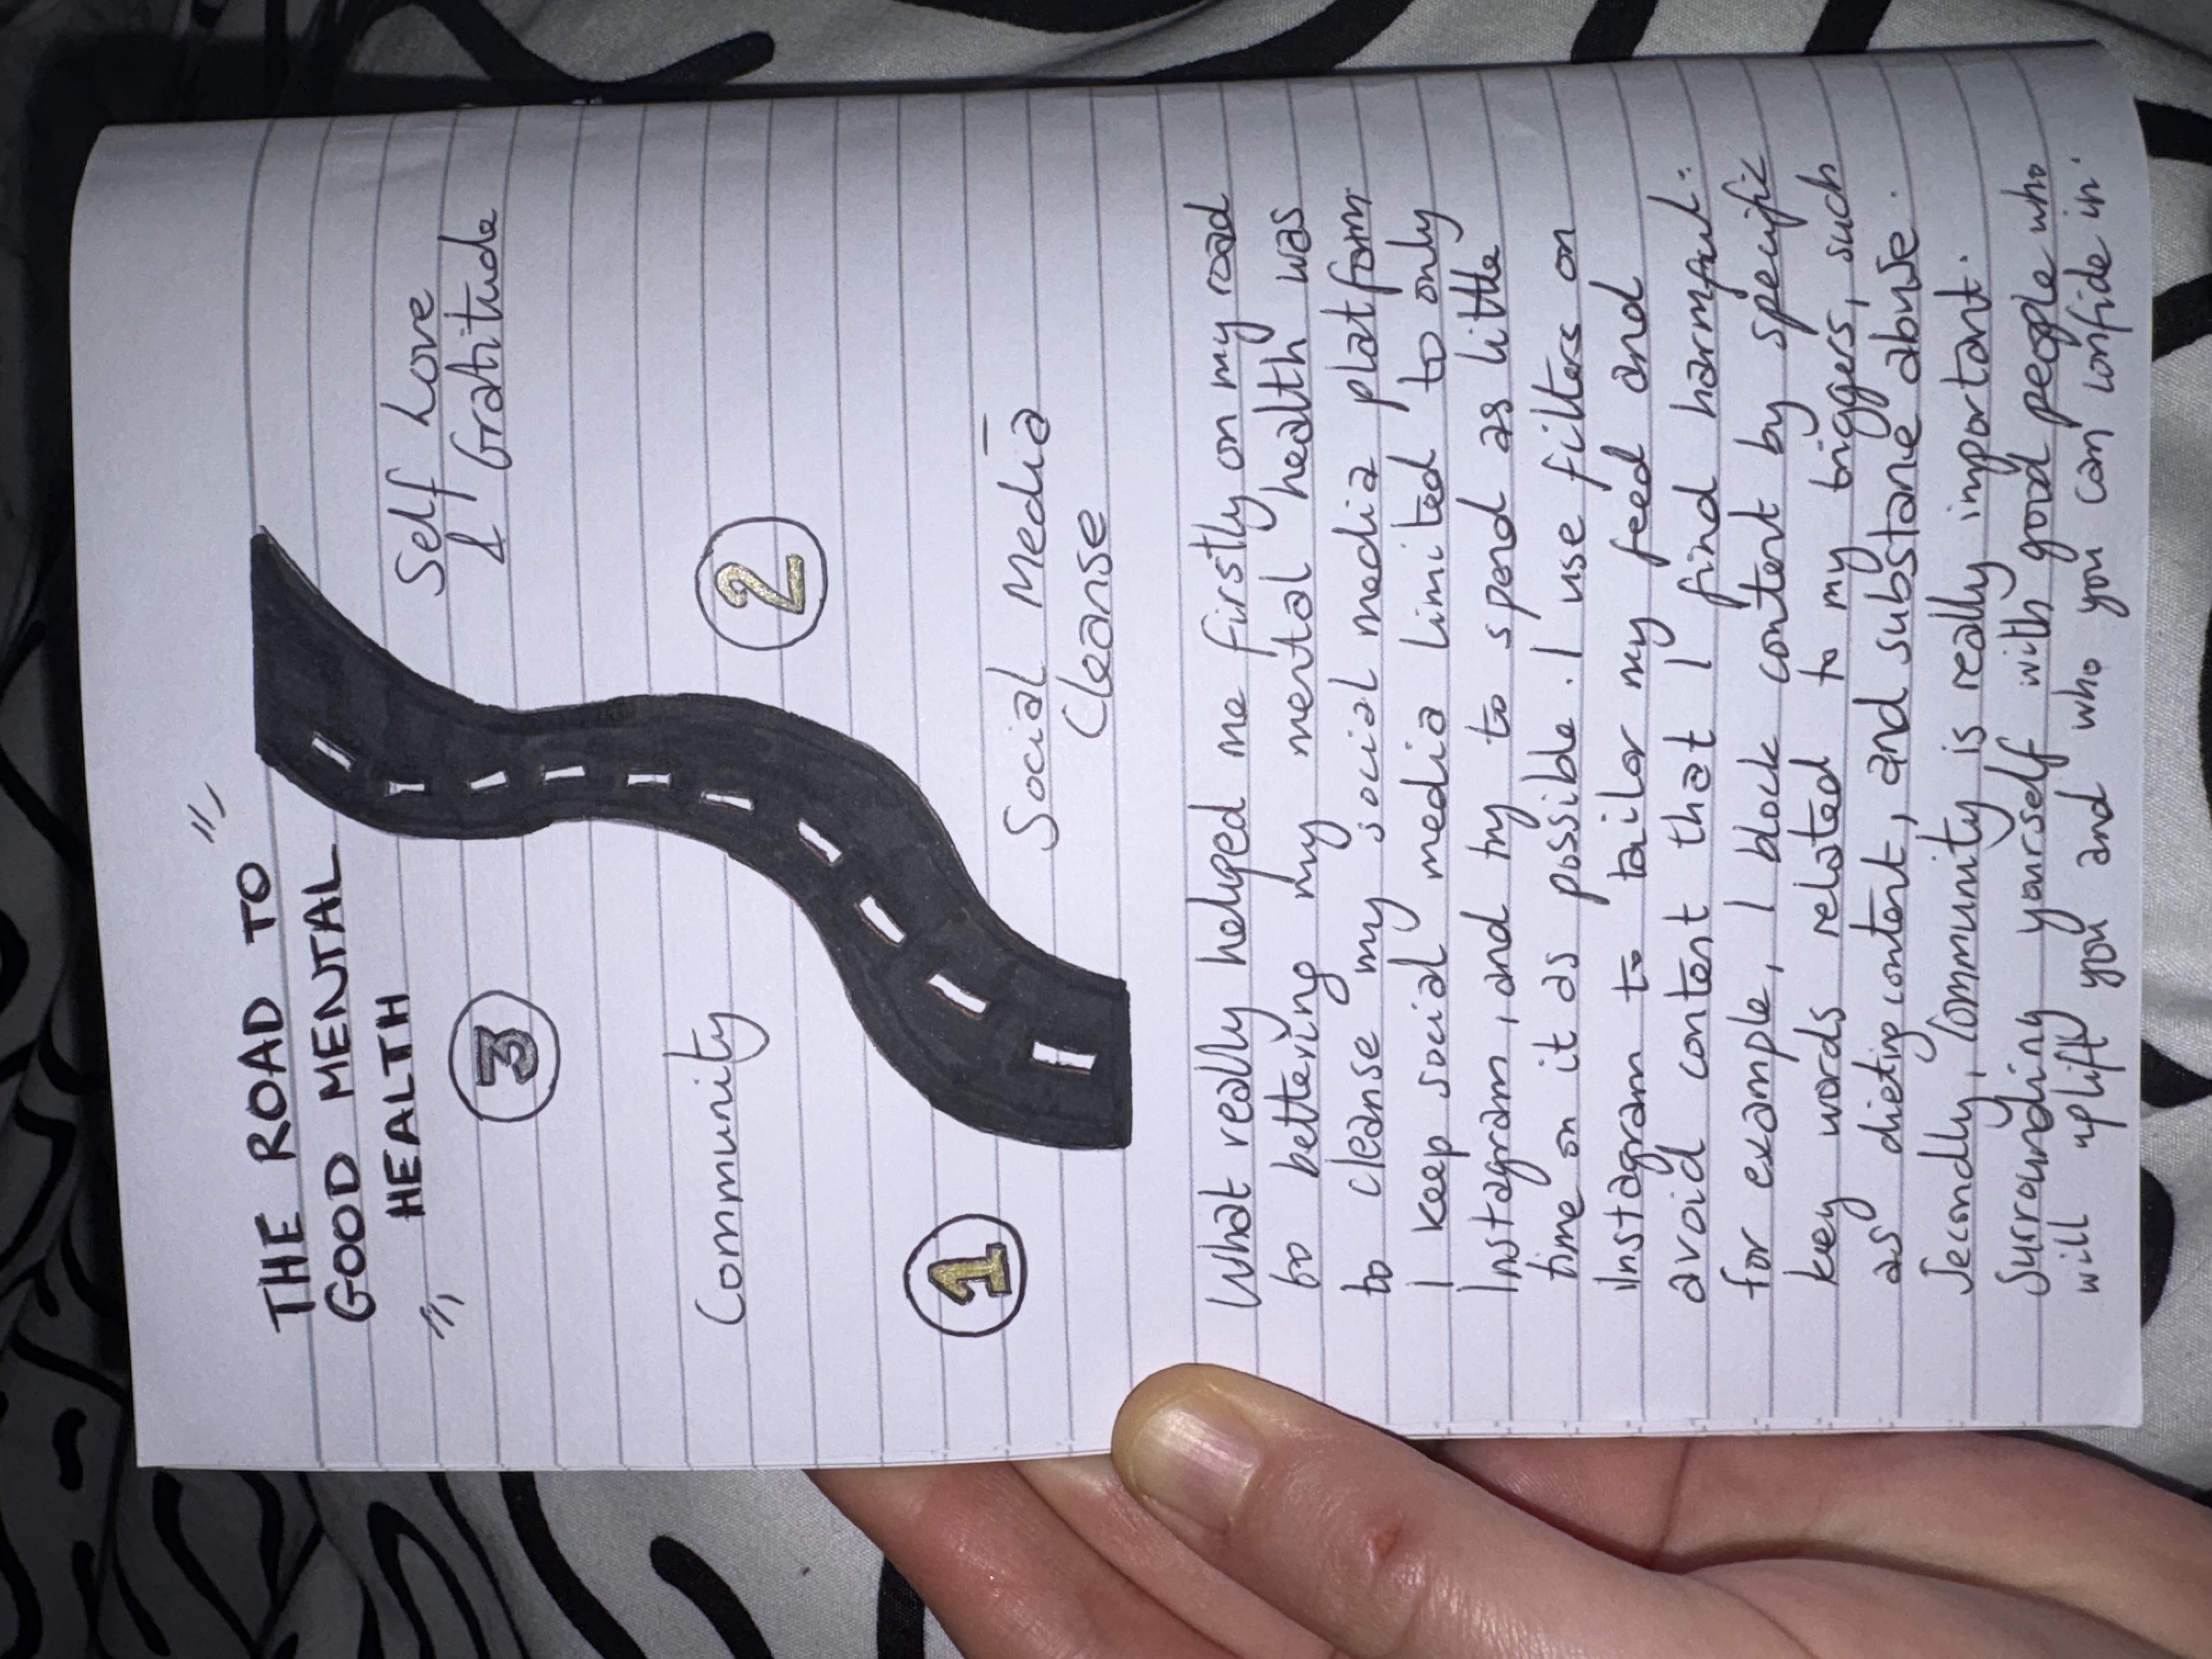 THE ROAD TO
GOOD MENTAL
HEALTH
3
Self Love
& Gratitude
Community
2
1
Social Media
Cleanse
What really helped me firstly on my road
to bettering my mental health was
to cleanse my social media platform
I keep social media limited to only
Instagram, and try to spend as little
time on it as possible. I use filters on
Instagram to tailor my feed and
avoid content that I find harmful.
for example, I block content by specific
key words related to my triggers, such
as dieting content, and substance abuse.
Secondly, Community is really important.
Surrounding yourself with good people who
will uplift you and who you can confide in.